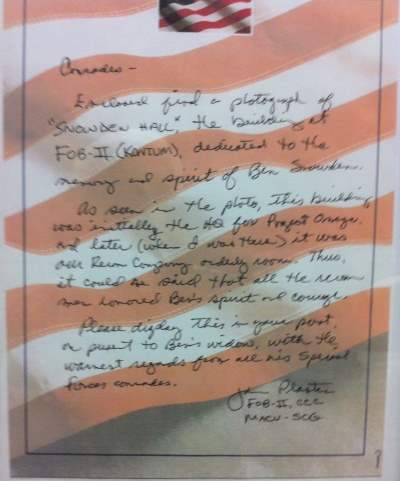 Comrades –
Enclosed find a photograph of
"SNOWDEN HALL," the building at
FOB-II (KONTUM), dedicated to the
memory and spirit of Ben Snowden.
As seen in the photo, this building
was initially the HQ for Project Omega,
and later (when I was there) it was
our Recon Company orderly room. Thus,
it could be said that all the recon
men honored Ben's spirit and courage.
Please display this in your post,
or present to Ben's widow, with the
warmest regards from all his Special
Forces comrades.
John Plaster
FOB-II, CCC
MACV-SOG